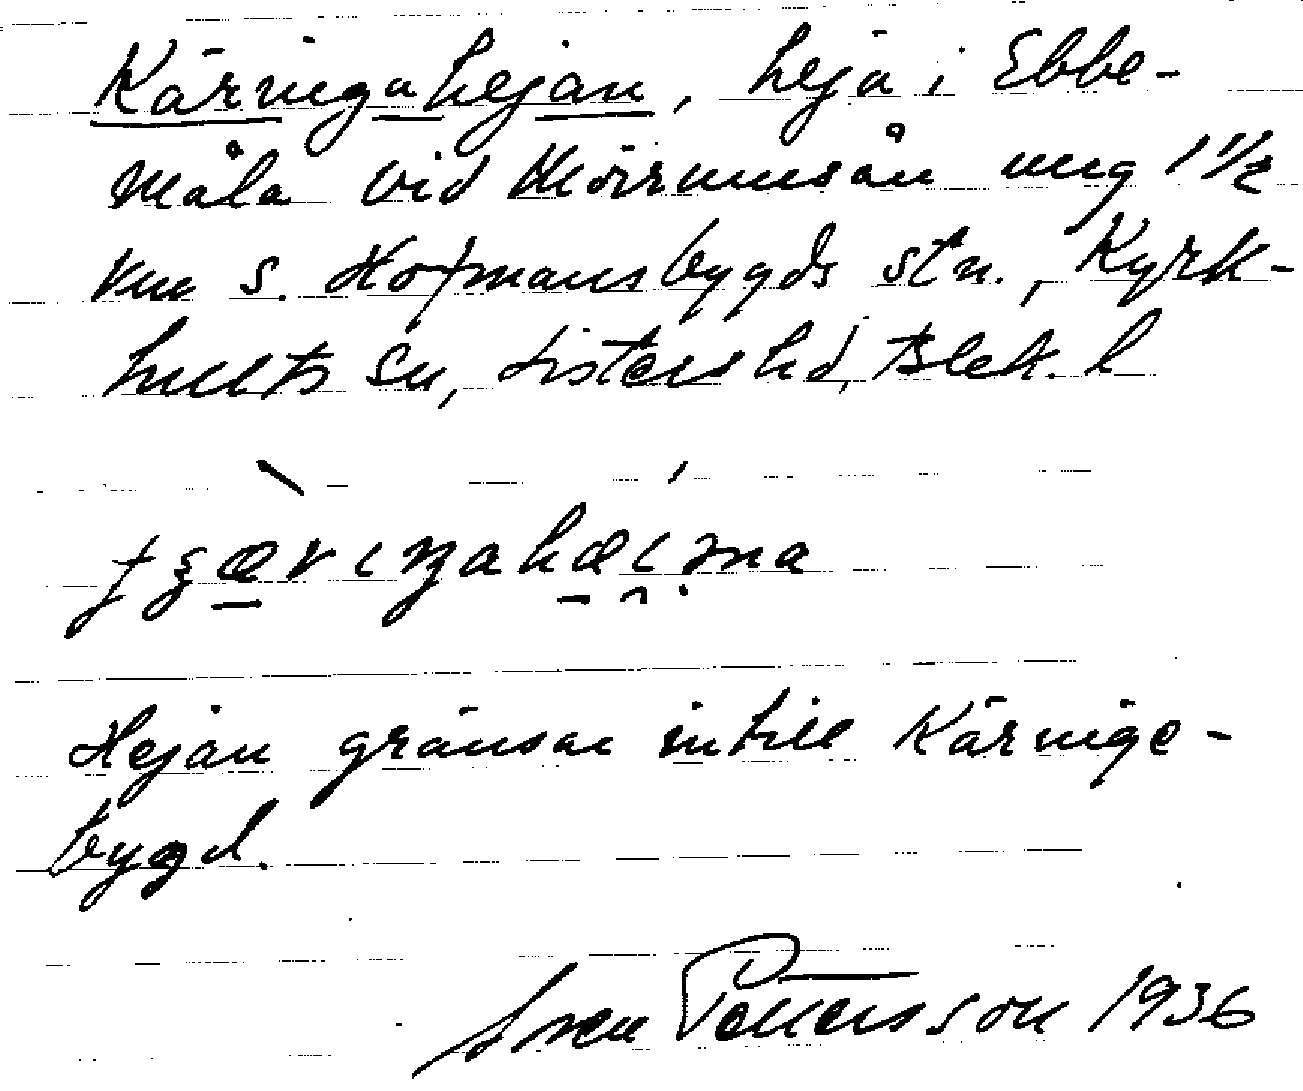 Käringahejan, heja i Ebbe-
måla vid Mörrumsån ung 1 1/2
km s. Hofmansbygds stn., Kyrk-
hults sn, Listers hd, Blek. l
Hejan gränsar intill Käringe-
bygd.
Sven Pettersson 1936